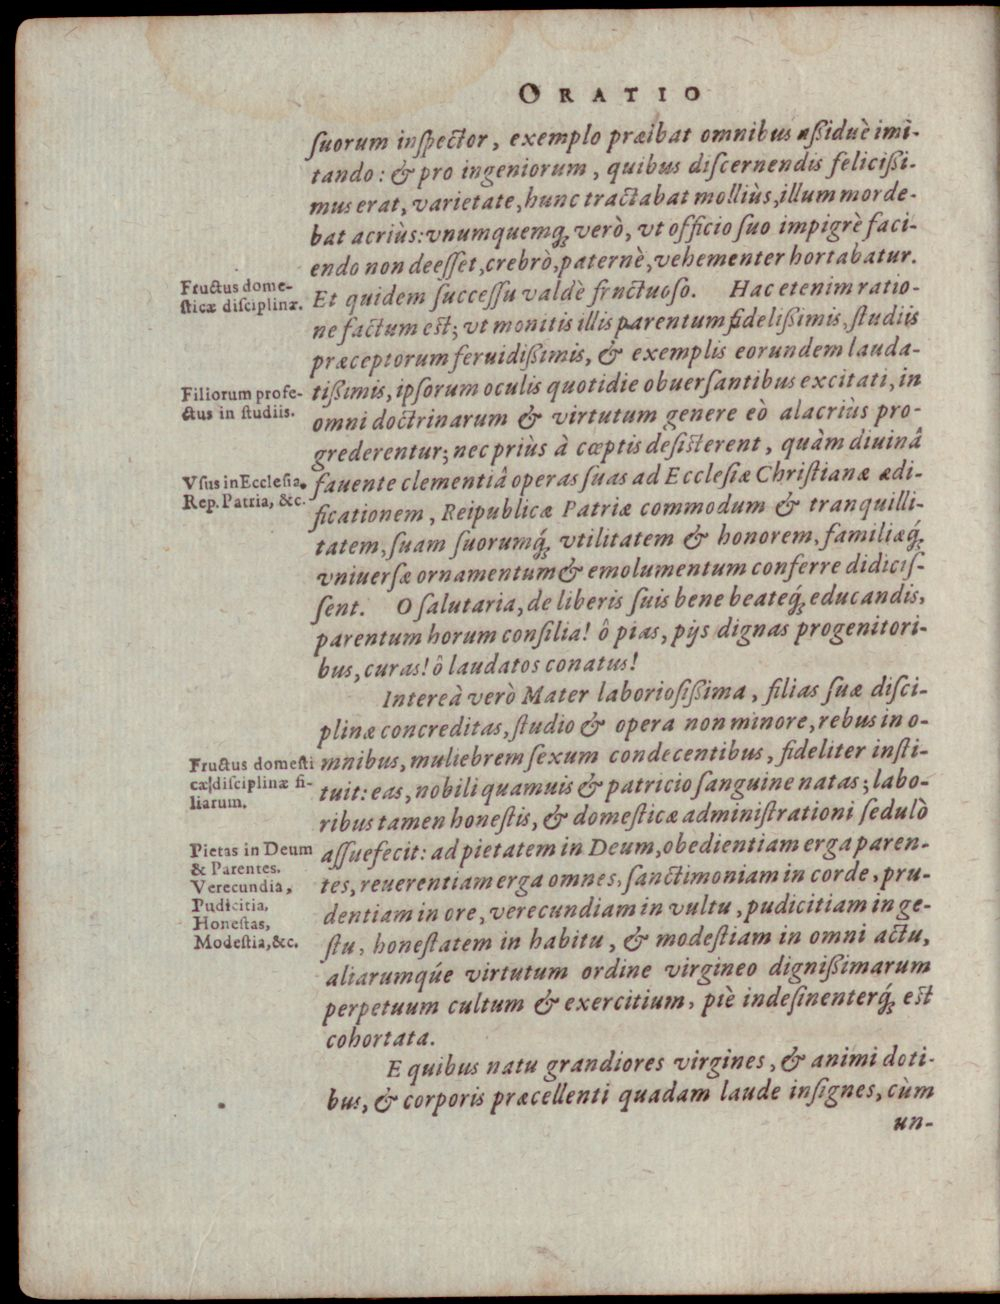 ORATIO
ſuorum inſpector, exemplo præibat omnibus aßiduè imi-
tando: & pro ingeniorum, quibus diſcernendis felicißi-
mus erat, varietate, hunc tractabat molliùs, illum morde-
bat acriùs: vnumquemq́ꝫ verò, vt officio ſuo impigrè faci-
endo non deeſſet, crebrò, paternè, vehementer hortabatur.
Fructus dome-
ſticæ diſciplinæ.
Et quidem ſucceſſu valdè fructuoſo. Hac etenim ratio-
ne factum est; vt monitis illis parentum fidelißimis, ſtudiis
præceptorum feruidißimis, & exemplis eorundem lauda-
Filiorum profe-
ctus in ſtudiis.
tißimis, ipſorum oculis quotidie obuerſantibus excitati, in
omni doctrinarum & virtutum genere eò alacriùs pro-
grederentur; nec priùs à cœptis deſisterent, quàm diuinâ
Vſus in Eccleſia,
Rep. Patria, &c.
fauente clementiâ operas ſuas ad Eccleſiæ Chriſtianæ ædi-
ficationem, Reipublicæ Patriæ commodum & tranquilli-
tatem, ſuam ſuorumq́ꝫ vtilitatem & honorem, familiæq́ꝫ
vniuerſæ ornamentum & emolumentum conferre didiciſ-
ſent. O ſalutaria, de liberis ſuis bene beateq́ꝫ educandis,
parentum horum conſilia! ô pias, pijs dignas progenitori-
bus, curas! ô laudatos conatus!
Intereà verò Mater laborioſißima, filias ſuæ diſci-
plinæ concreditas, ſtudio & opera non minore, rebus in o-
Fructus domeſti
cæ diſciplinæ fi-
liarum.
mnibus, muliebrem ſexum condecentibus, fideliter inſti-
tuit: eas, nobili quamuis & patricio ſanguine natas; labo-
ribus tamen honeſtis, & domeſticæ adminiſtrationi ſedulò
Pietas in Deum
& Parentes.
Verecundia,
Pudicitia,
Honeſtas,
Modeſtia, &c.
aſſuefecit: ad pietatem in Deum, obedientiam erga paren-
tes, reuerentiam erga omnes, ſanctimoniam in corde, pru-
dentiam in ore, verecundiam in vultu, pudicitiam in ge-
ſtu, honeſtatem in habitu, & modeſtiam in omni actu,
aliarumqúe virtutum ordine virgineo dignißimarum
perpetuum cultum & exercitium, piè indeſinenterq́ꝫ est
cohortata.
E quibus natu grandiores virgines, & animi doti-
bus, & corporis præcellenti quadam laude inſignes, cùm
un-